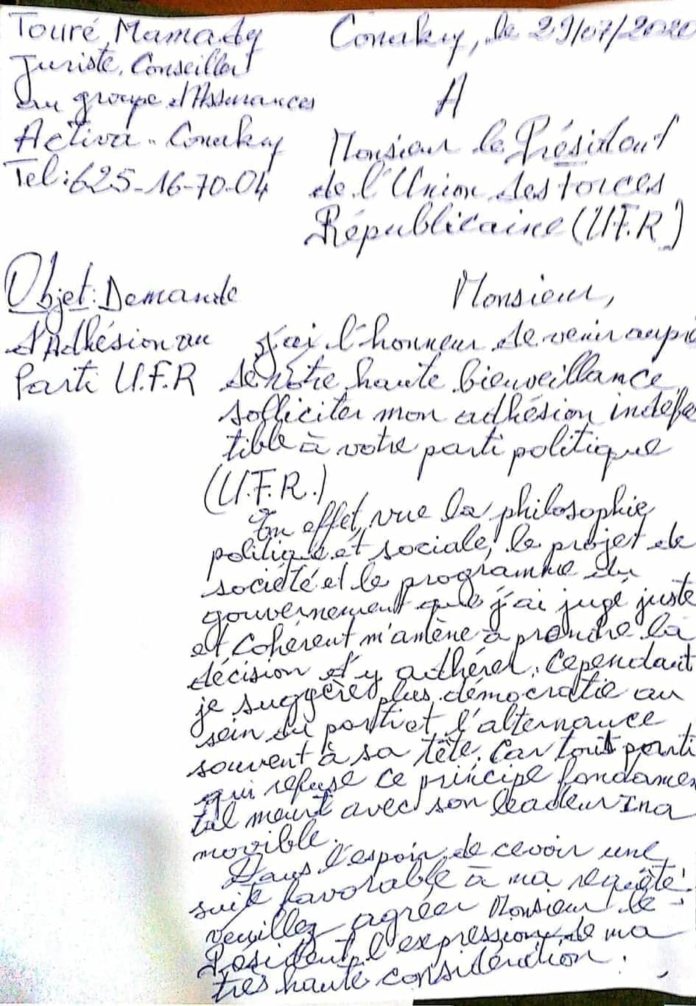 Touré Mamady
Conaky, le 29/07/2020
Juriste, Conseiller
au groupe d'Assurances
A
Activa - Conaky
Monsieur le Président
Tel: 625-16-70-04
de l'Union des Forces
Républicaine (U.F.R)
Objet: Demande
Monsieur,
d'Adhésion au
j'ai l'honneur de venir auprè
Parti U.F.R
de vôtre haute bienveillance
solliciter mon adhésion indéfe
tible à votre parti politique
(U.F.R.)
En effet, vue la philosophie
politique et sociale, le projet de
société et le programme du
gouvernement que j'ai jugé juste
et cohérent m'amène à prendre la
décision d'y adhérer. Cependant
je suggère plus démocratie au
sein du parti et l'alternance
souvent à sa tête. Car tout parti
qui refuse ce principe fondamen
tal meurt avec son leadeur ina
movible.
Dans l'espoir de cevoir une
suite favorable à ma requête!
veuillez agréer Monsieur le
Président l'expression de ma
très haute considération.